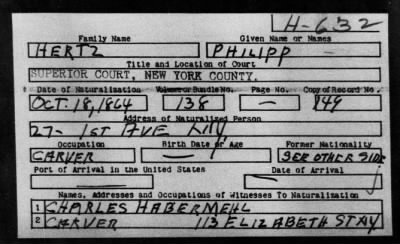 H-632
Family Name Given Name or Names
HERTZ PHILIPP
Title and Location of Court
SUPERIOR COURT, NEW YORK COUNTY.
Date of Naturalization Volume or Bundle No. Page No. Copy of Record No.
OCT. 18, 1864 138 — 149
Address of Naturalized Person
27- 1ST AVE
Occupation Birth Date or Age Former Nationality
CARVER — SEE OTHER SIDE
Port of Arrival in the United States Date of Arrival
— —
Names, Addresses and Occupations of Witnesses To Naturalization
1 CHARLES HABERMEHL
2 CARVER 113 ELIZABETH ST